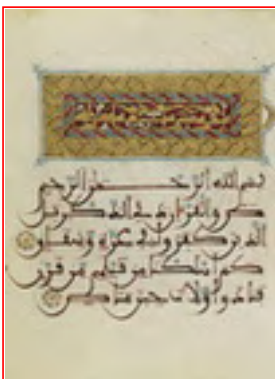 بسم الله الرحمن الرحيم
ص والقرآن ذي الذكر بل
الذين كفروا في عزة وشقاق
كم أهلكنا من قبلهم من قرن
فنادوا ولات حين مناص